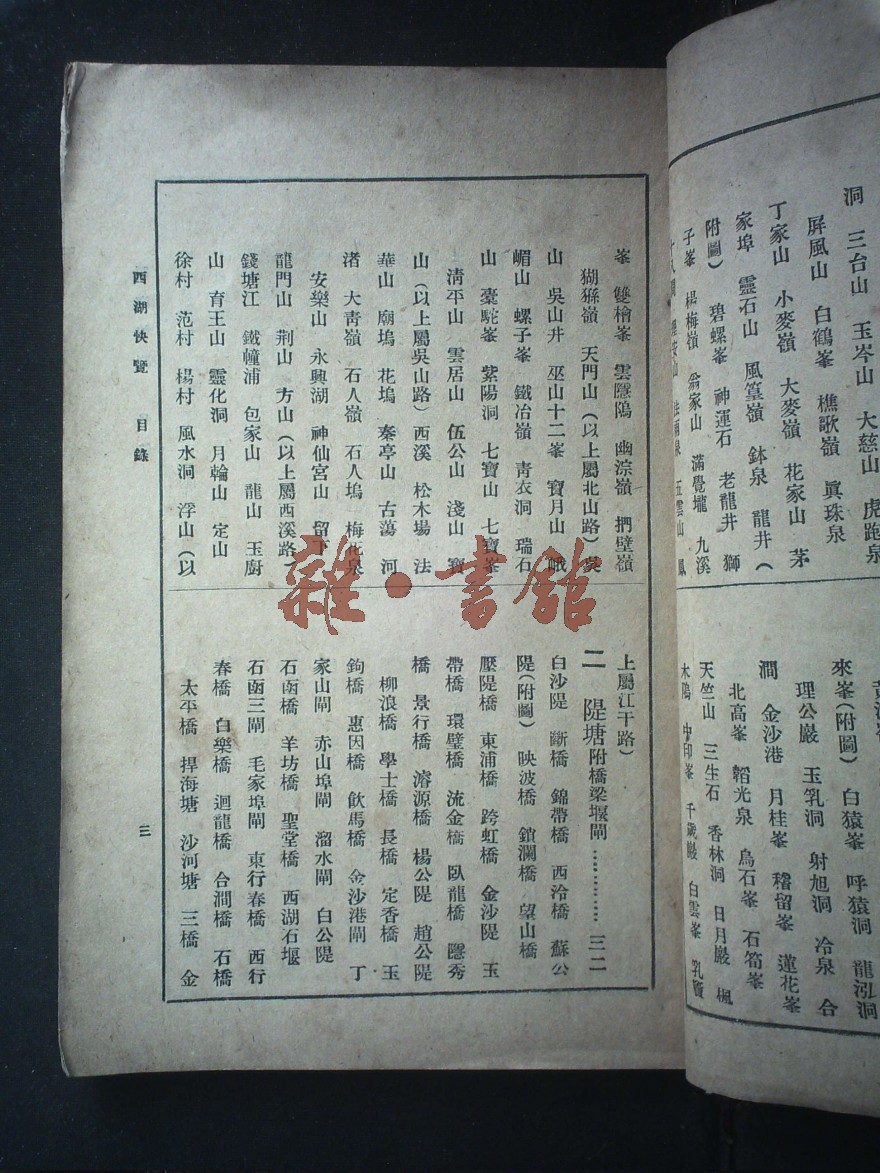 洞　三台山　玉岑山　大慈山　虎跑泉
屏風山　白鶴峯　樵歌嶺　眞珠泉
丁家山　小麥嶺　大麥嶺　花家山　茅
家埠　靈石山　風篁嶺　鉢泉　龍井（
附圖）　碧螺峯　神運石　老龍井　獅
子峯　楊梅嶺　翁家山　滿覺壠　九溪
五雲山　鳳
來峯（附圖）　白猿峯　呼猿洞　龍泓洞
理公巖　玉乳洞　射旭洞　冷泉　合
澗　金沙港　月桂峯　稽留峯　蓮花峯
北高峯　韜光泉　烏石峯　石筍峯
天竺山　三生石　香林洞　日月巖　楓
木隖　中印峯　千歲巖　白雲峯　乳竇
峯　雙檜峯　雲隱隖　幽淙嶺　捫壁嶺
猢猻嶺　天門山（以上屬北山路）　吳
山　吳山井　巫山十二峯　寶月山　峨
嵋山　螺子峯　鐵冶嶺　靑衣洞　瑞石
山　臺駝峯　紫陽洞　七寶山　七寶峯
淸平山　雲居山　伍公山　淺山　寶
山（以上屬吳山路）西溪　松木塲　法
華山　廟塢　花塢　秦亭山　古蕩　河
渚　大靑嶺　石人嶺　石人塢　梅花泉
安樂山　永興湖　神仙宮山　留下
龍門山　荆山　方山（以上屬西溪路）
錢塘江　鐵幢浦　包家山　龍山　玉廚
山　育王山　靈化洞　月輪山　定山
徐村　范村　楊村　風水洞　浮山（以
上屬江干路）
二　隄塘附橋梁堰閘…………三二
白沙隄　斷橋　錦帶橋　西泠橋　蘇公
隄（附圖）　映波橋　鎖瀾橋　望山橋
壓隄橋　東浦橋　跨虹橋　金沙隄　玉
帶橋　環璧橋　流金橋　臥龍橋　隱秀
橋　景行橋　濬源橋　楊公隄　趙公隄
柳浪橋　學士橋　長橋　定香橋　玉
鉤橋　惠因橋　飮馬橋　金沙港閘　丁
家山閘　赤山埠閘　溜水閘　白公隄
石函橋　羊坊橋　聖堂橋　西湖石堰
石函三閘　毛家埠閘　東行春橋　西行
春橋　白樂橋　迴龍橋　合澗橋　石橋
太平橋　捍海塘　沙河塘　三橋　金
西湖快覽　目錄
三
雜·書館